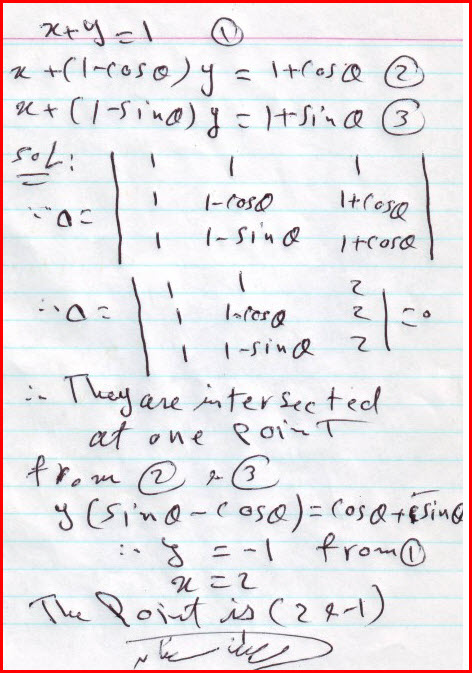 x+y=1 ①
x+(1-cosθ)y = 1+cosθ ②
x+(1-sinθ)y = 1+sinθ ③
sol:
∵ Δ = | 1 1 1 |
| 1 1-cosθ 1+cosθ |
| 1 1-sinθ 1+cosθ |
∴ Δ = | 1 1 2 |
| 1 1-cosθ 2 | = 0
| 1 1-sinθ 2 |
∴ They are intersected
at one point
from ② & ③
y (sinθ-cosθ) = cosθ+sinθ
∴ y = -1 from ①
x = 2
The Point is (2 & -1)